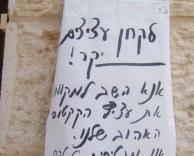 בה
לקחן עציצים
יקר!
אנא השב למקומו
את עציץ הקקטוס
האהוב שלנו.